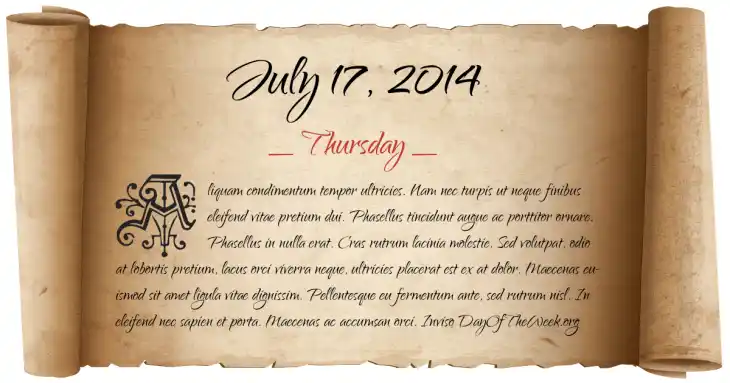 July 17, 2014
_ Thursday _
Aliquam condimentum tempor ultricies. Nam nec turpis ut neque finibus
eleifend vitae pretium dui. Phasellus tincidunt augue ac porttitor ornare.
Phasellus in nulla erat. Cras rutrum lacinia molestie. Sed volutpat, odio
at lobortis pretium, lacus orci viverra neque, ultricies placerat est ex at dolor. Maecenas eu-
ismod sit amet ligula vitae dignissim. Pellentesque eu fermentum ante, sed rutrum nisl. In
eleifend nec sapien et porta. Maecenas ac accumsan orci. Inviso DayOfTheWeek.org